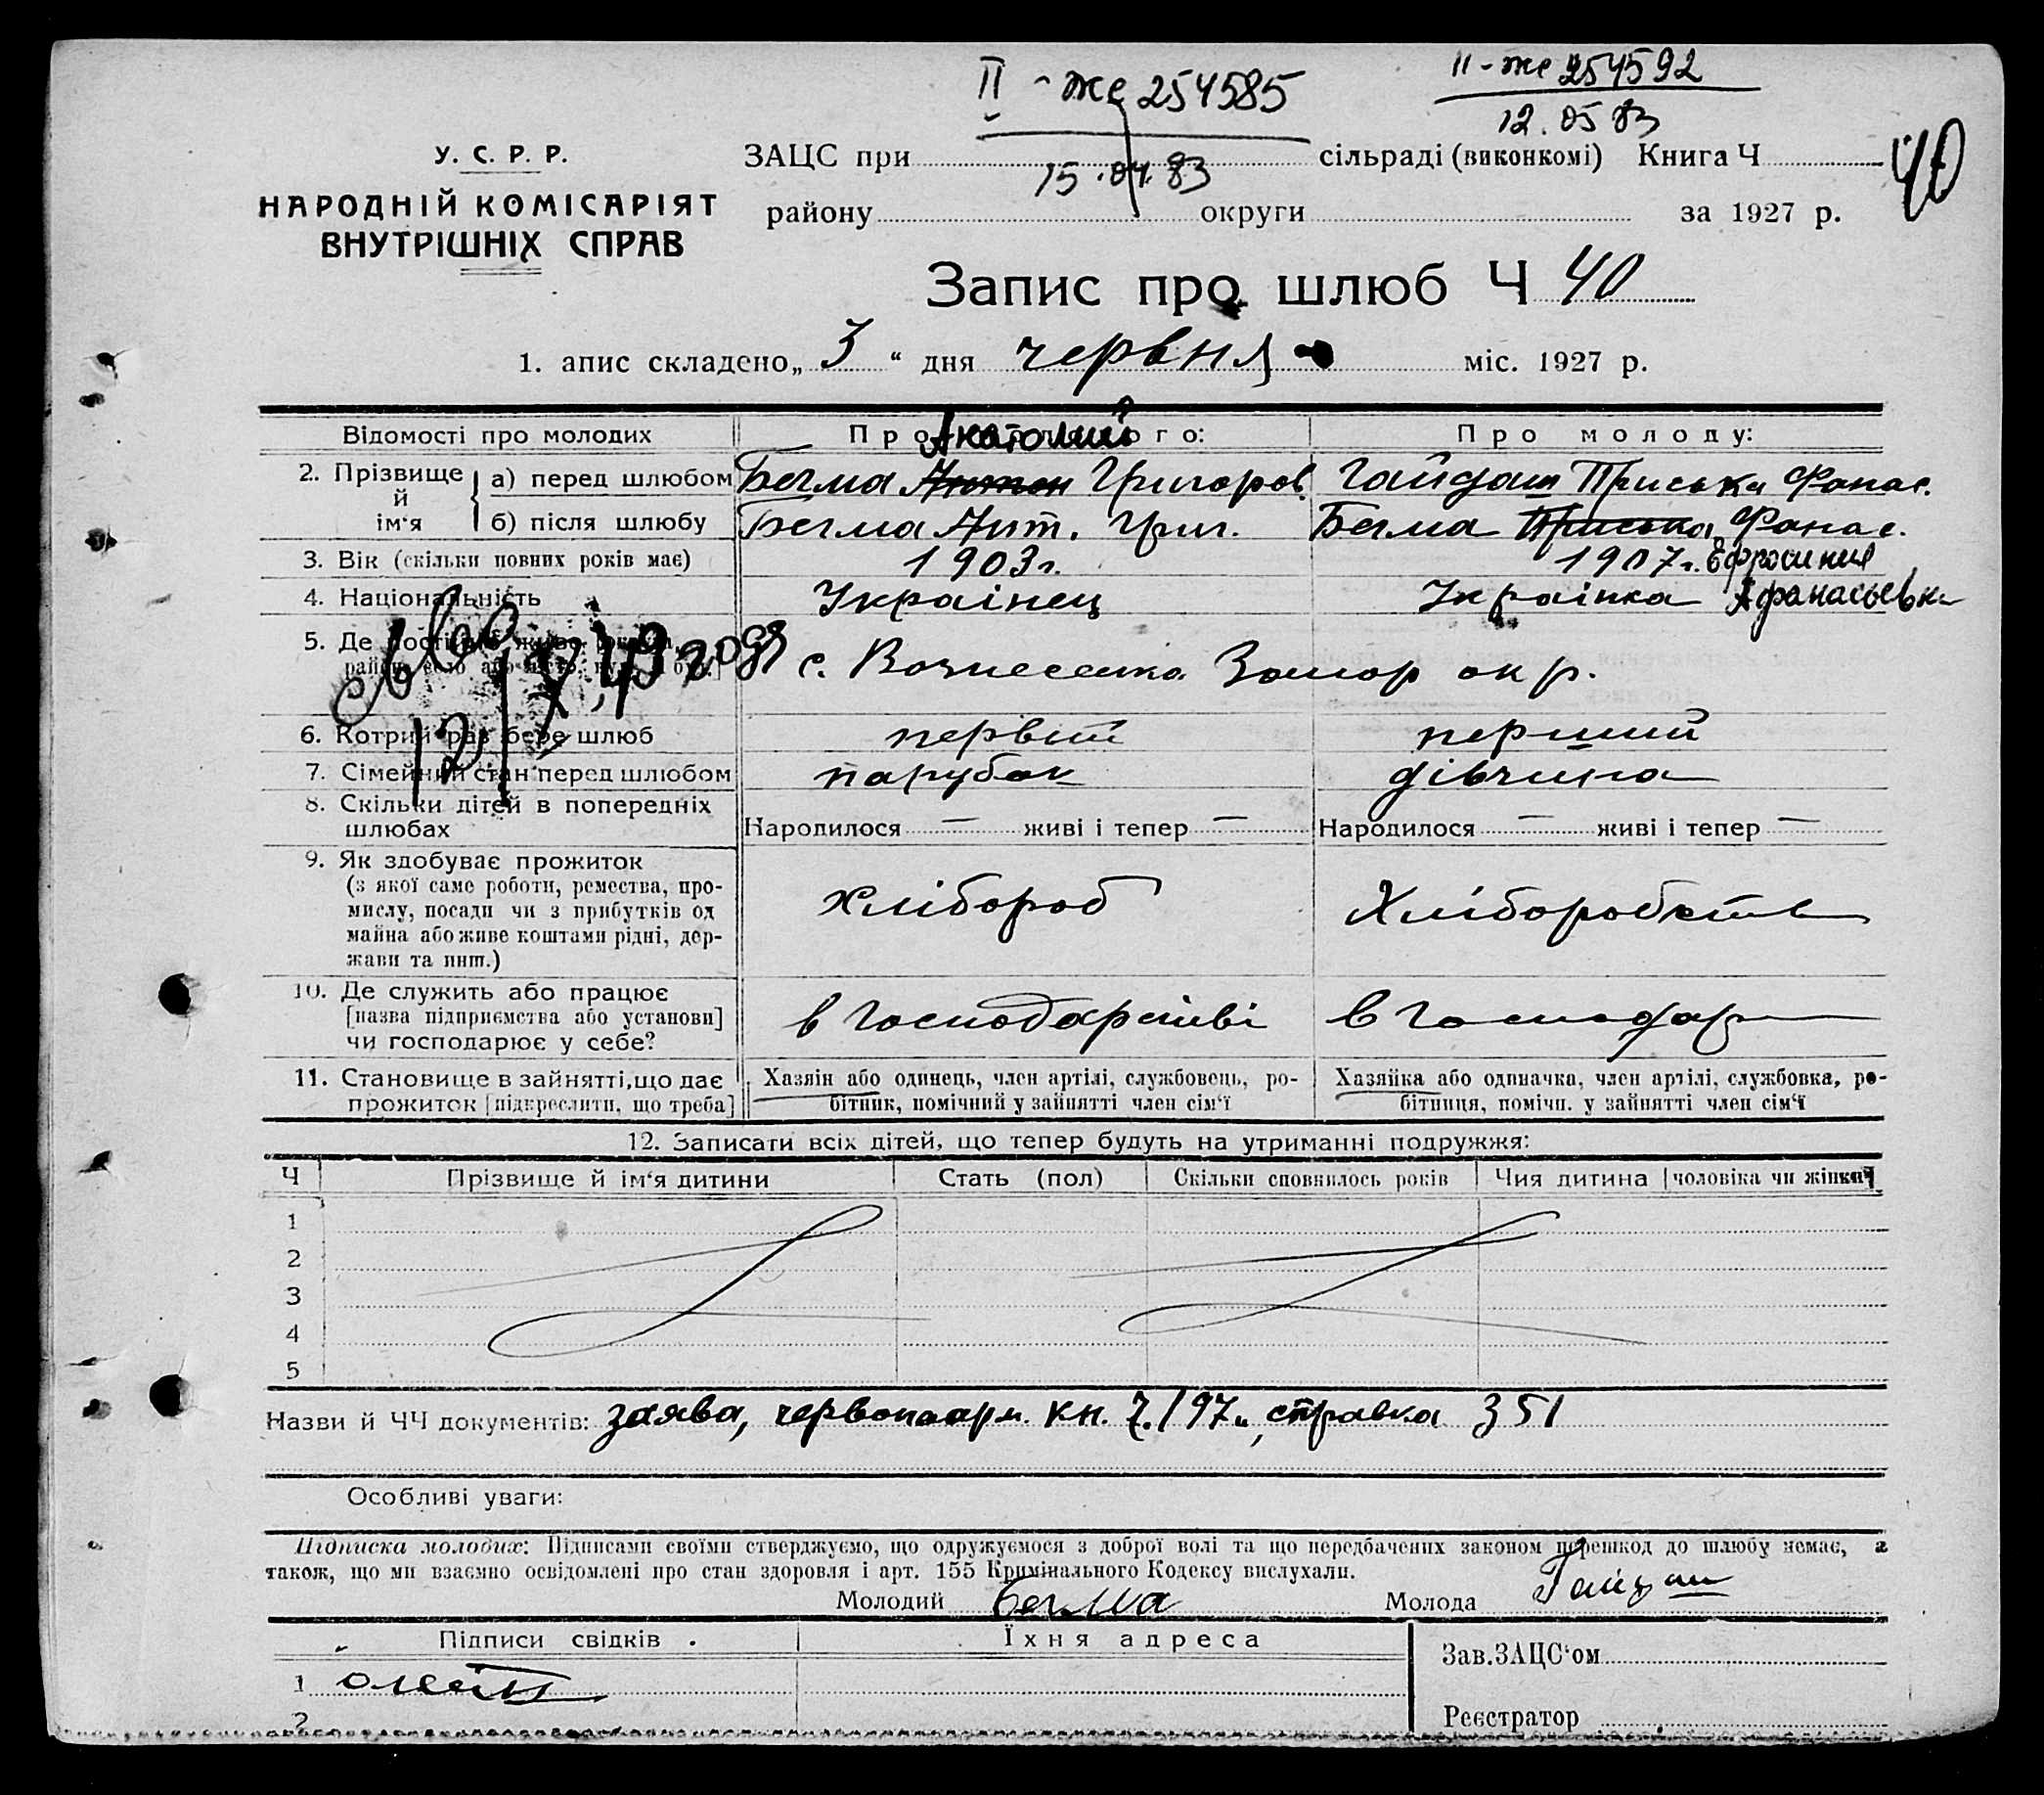 II - же 254585
15.04.83
II - же 254592
12.05 83
У. С. Р. Р.
НАРОДНІЙ КОМІСАРІЯТ
ВНУТРІШНІХ СПРАВ
ЗАЦС при сільраді (виконкомі) Книга Ч
40
району округи за 1927 р.
Запис про шлюб Ч 40
1. апис складено „ 3 “ дня червня міс. 1927 р.
Відомості про молодих
Про ого:
Анатолий
Про молоду:
2. Прізвище й ім‘я
а) перед шлюбом
Бегма Антон Григоров.
Гайдаш Приська Фанас.
б) після шлюбу
Бегма Ант. Григ.
Бегма Приська Фанас.
3. Вік (скільки повних років має)
1903 г.
1907 г. Ефросиния
4. Національність
Українец
Українка Афанасьевна
5. Де постійно живе
с. Вознесенка Запор окр.
6. Котрий раз бере шлюб
первий
перший
7. Сімейний стан перед шлюбом
парубок
дівчина
8. Скільки дітей в попередніх
шлюбах
Народилося — живі і тепер —
Народилося — живі і тепер —
9. Як здобуває прожиток
(з якої саме роботи, ремества, про-
мислу, посади чи з прибутків од
майна або живе коштами рідні, дер-
жави та инш.)
хлібороб
Хліборобств
10. Де служить або працює
[назва підприємства або установи]
чи господарює у себе?
в господарстві
в господар
11. Становище в зайнятті, що дає
прожиток [підкреслити, що треба]
Хазяін або одинець, член артілі, службовець, ро-
бітник, помічний у зайнятті член сім‘ї
Хазяйка або одиначка, член артілі, службовка, ро-
бітниця, помічн. у зайнятті член сім‘ї
12. Записати всіх дітей, що тепер будуть на утриманні подружжя:
Ч Прізвище й ім‘я дитини Стать (пол) Скільки сповнилось років Чия дитина [чоловіка чи жінки]
1
2
3
4
5
Назви й ЧЧ документів: заява, червоноарм. кн. 7./97., справка 351
Особливі уваги:
Підписка молодих: Підписами своїми стверджуємо, що одружуємося з доброї волі та що передбачених законом перешкод до шлюбу немає, а
також, що ми взаємно освідомлені про стан здоровля і арт. 155 Кримінального Кодексу вислухали.
Молодий Бегма Молода Гайдаш
Підписи свідків
Їхня адреса
1
2
Зав. ЗАЦС‘ом
Реєстратор